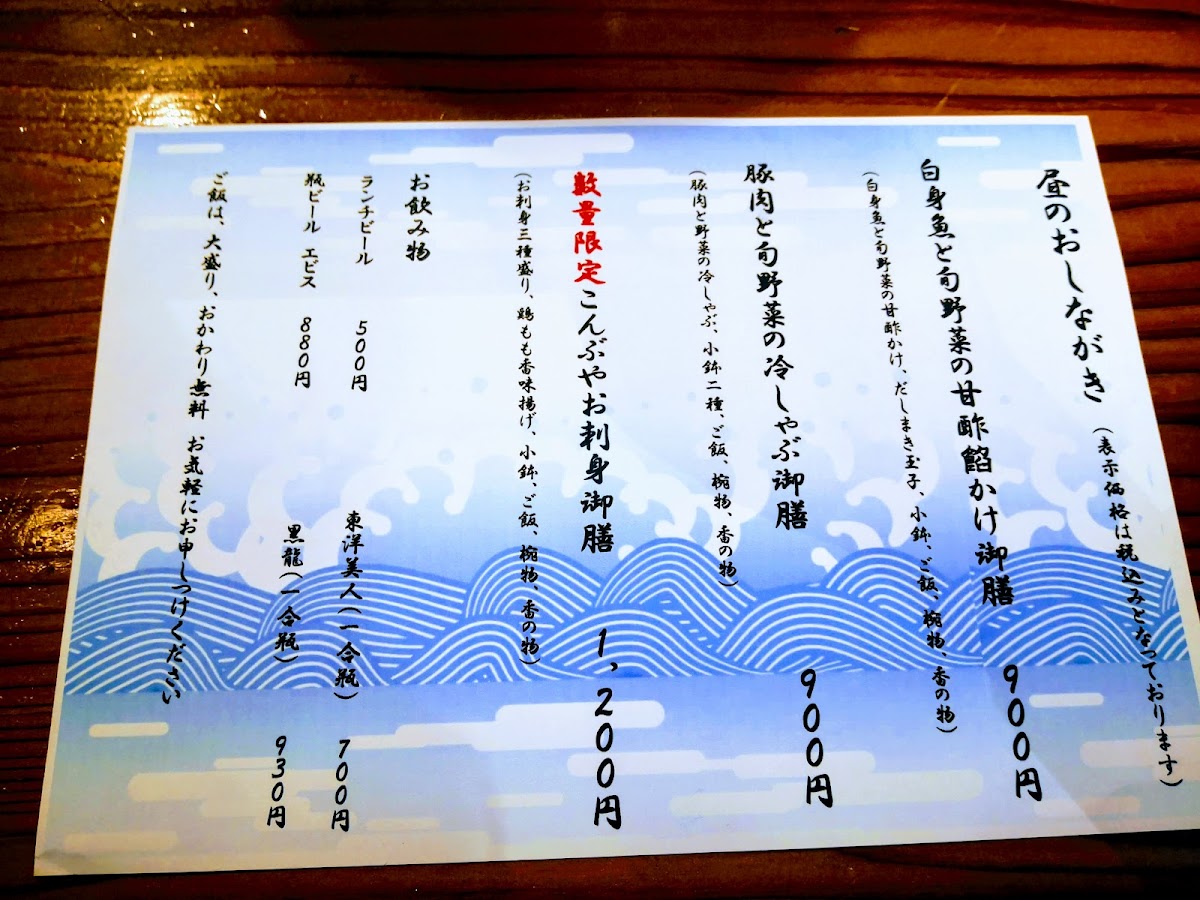 昼のおしながき (表示価格は税込みとなっております)
白身魚と旬野菜の甘酢餡かけ御膳 900円
(白身魚と旬野菜の甘酢かけ、だしまき玉子、小鉢、ご飯、椀物、香の物)
豚肉と旬野菜の冷しゃぶ御膳 900円
(豚肉と野菜の冷しゃぶ、小鉢二種、ご飯、椀物、香の物)
数量限定こんぶやお刺身御膳 1,200円
(お刺身三種盛り、鶏もも香味揚げ、小鉢、ご飯、椀物、香の物)
お飲み物
ランチビール 500円 東洋美人(一合瓶) 700円
瓶ビール エビス 880円 黒龍(一合瓶) 930円
ご飯は、大盛り、おかわり無料 お気軽にお申しつけください